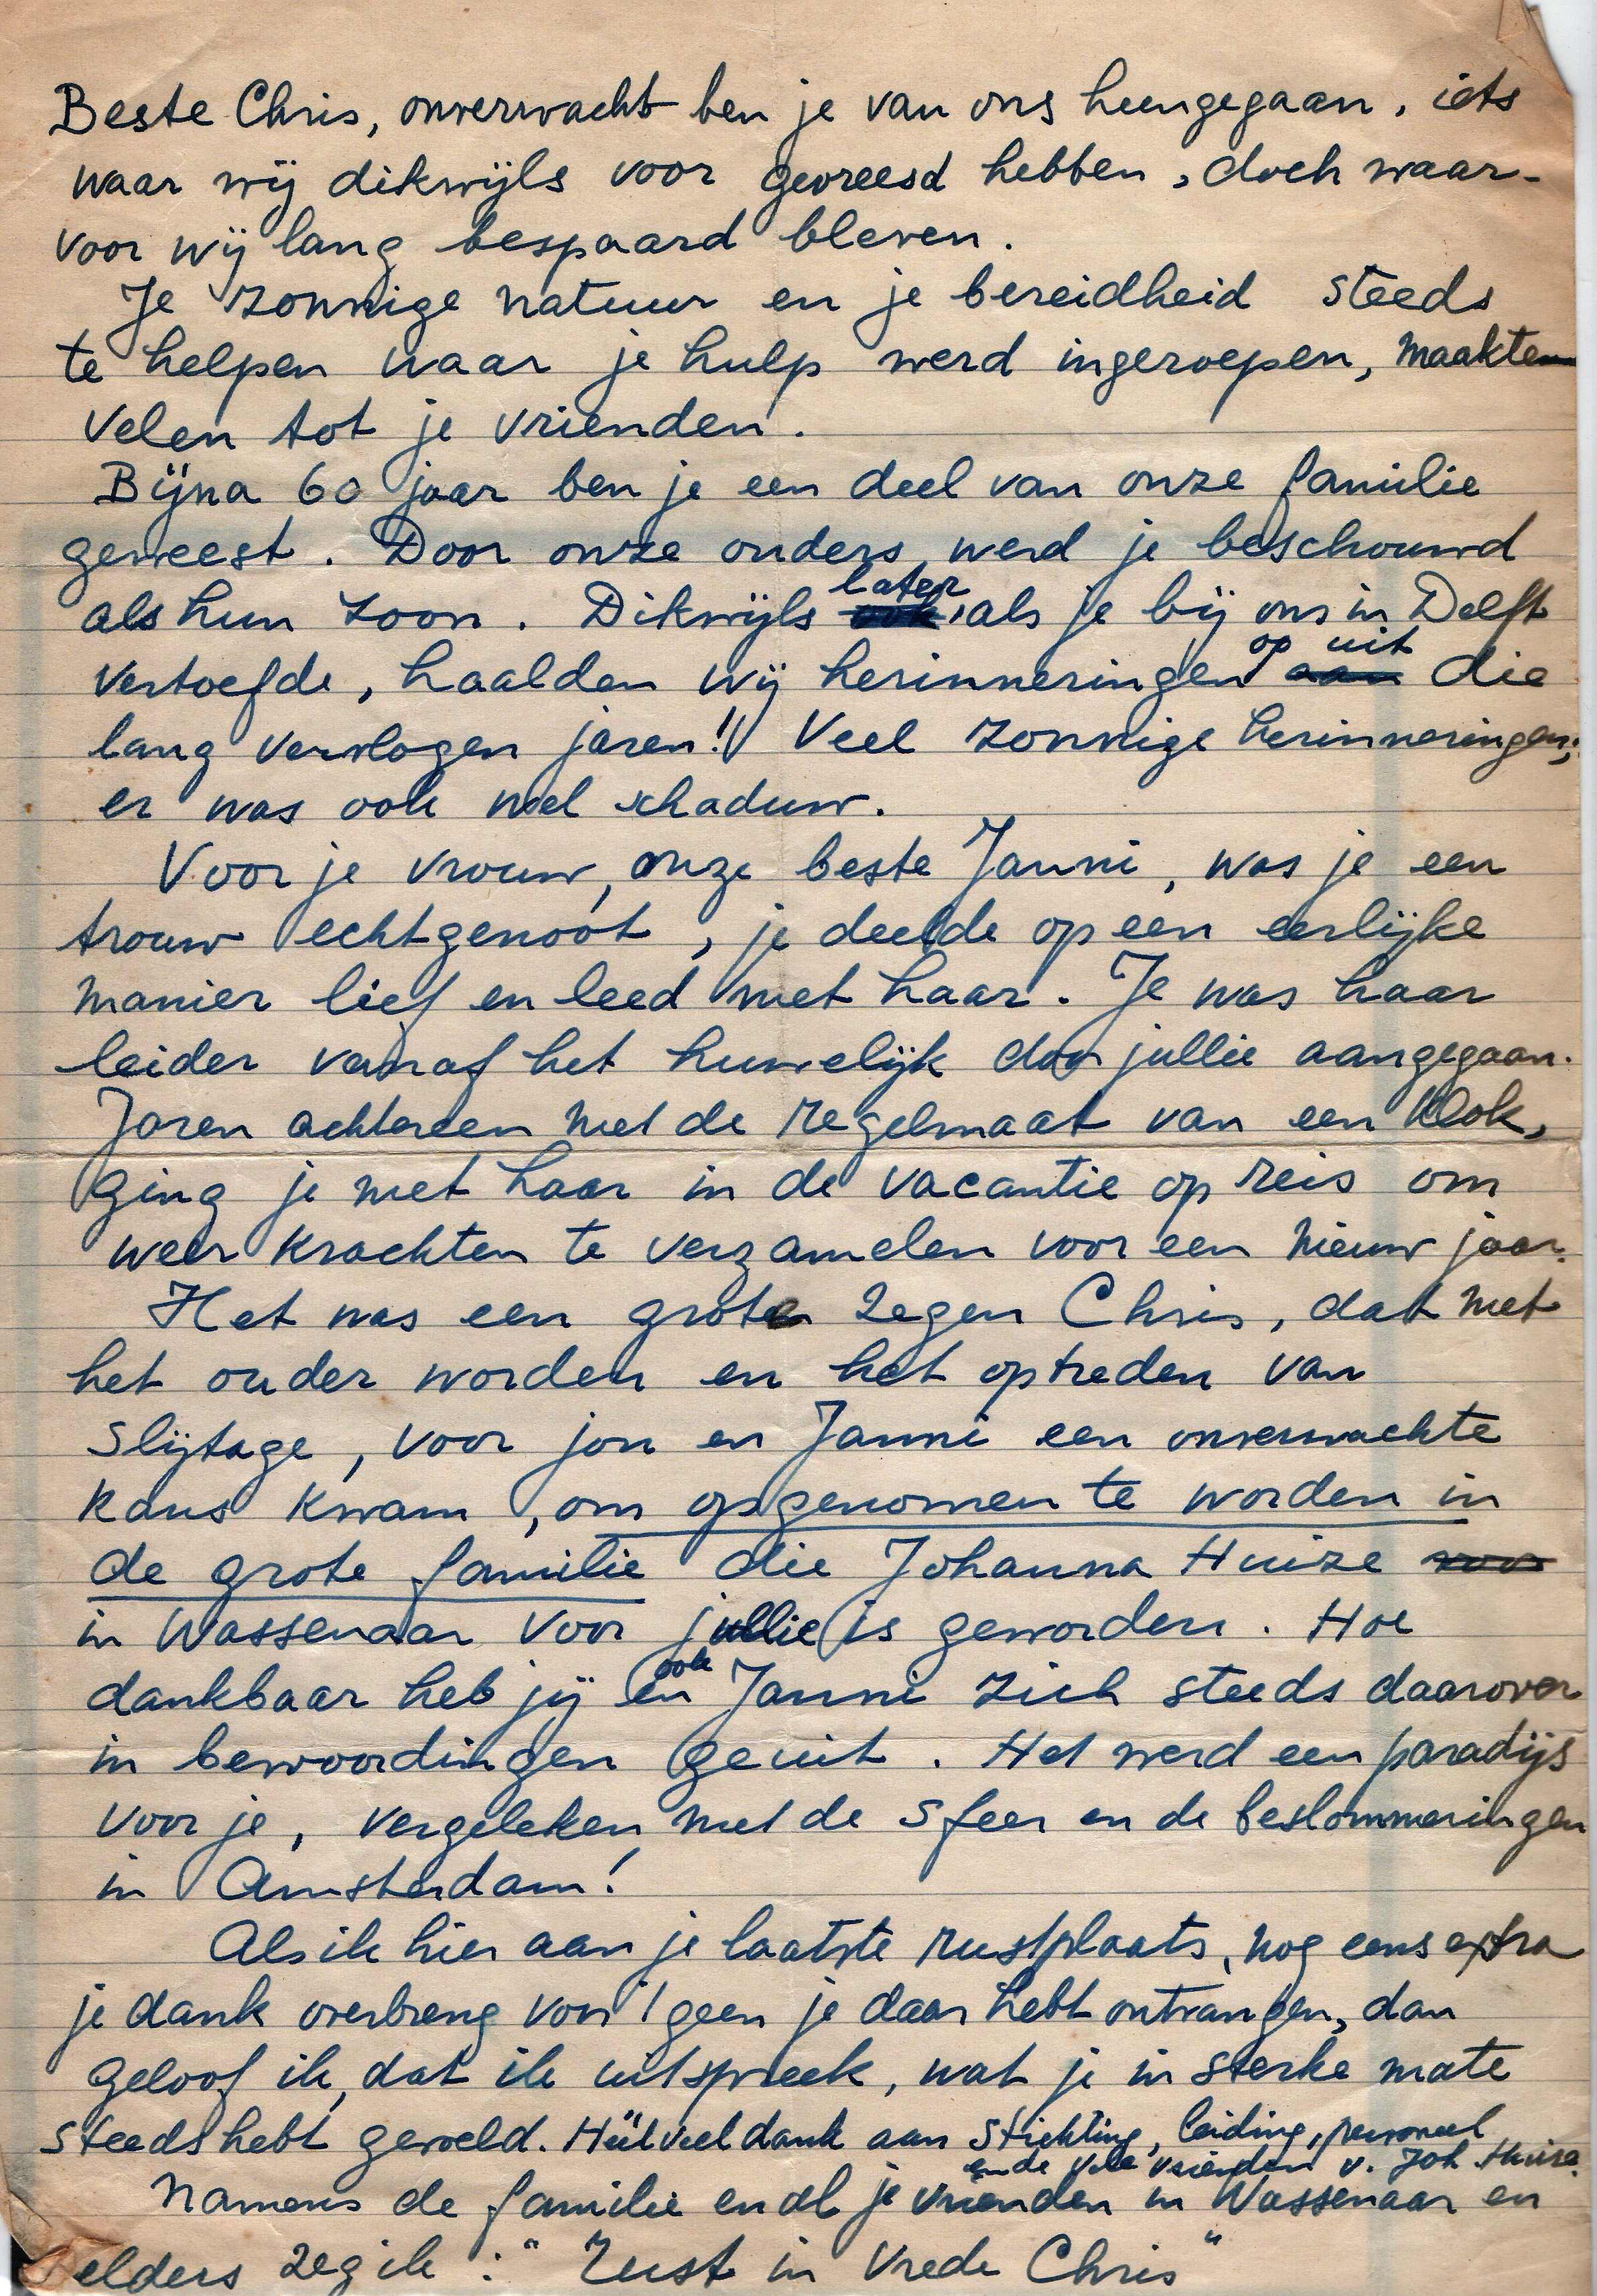 Beste Chris, onverwacht ben je van ons heengegaan, iets
waar wij dikwijls voor gevreesd hebben, doch waar-
voor wij lang bespaard bleven.
Je zonnige natuur en je bereidheid steeds
te helpen waar je hulp werd ingeroepen, maakten
velen tot je vrienden.
Bijna 60 jaar ben je een deel van onze familie
geweest. Door onze ouders werd je beschouwd
als hun zoon. Dikwijls ook later, als je bij ons in Delft
vertoefde, haalden wij herinneringen op aan uit die
lang vervlogen jaren!! Veel zonnige herinneringen;
er was ook wel schaduw.
Voor je vrouw, onze beste Janni, was je een
trouw echtgenoot, je deelde op een eerlijke
manier lief en leed met haar. Je was haar
leider vanaf het huwelijk door jullie aangegaan.
Jaren achtereen met de regelmaat van een klok,
ging je met haar in de vacantie op reis om
weer krachten te verzamelen voor een nieuw jaar.
Het was een grote zegen Chris, dat met
het ouder worden en het optreden van
slijtage, voor jou en Janni een onverwachte
kans kwam, om opgenomen te worden in
de grote familie die Johanna Huize voor
in Wassenaar voor jullie is geworden. Hoe
dankbaar heb jij en ook Janni zich steeds daarover
in bewoordingen geuit. Het werd een paradijs
voor je, vergeleken met de sfeer en de beslommeringen
in Amsterdam!
Als ik hier aan je laatste rustplaats, nog eens extra
je dank overbreng voor 't geen je daar hebt ontvangen, dan
geloof ik, dat ik uitspreek, wat je in sterke mate
steeds hebt gevoeld. Héél veel dank aan Stichting, leiding, personeel
en de vele vrienden v. Joh. Huize.
Namens de familie en al je vrienden in Wassenaar en
elders zeg ik: "Rust in vrede Chris"